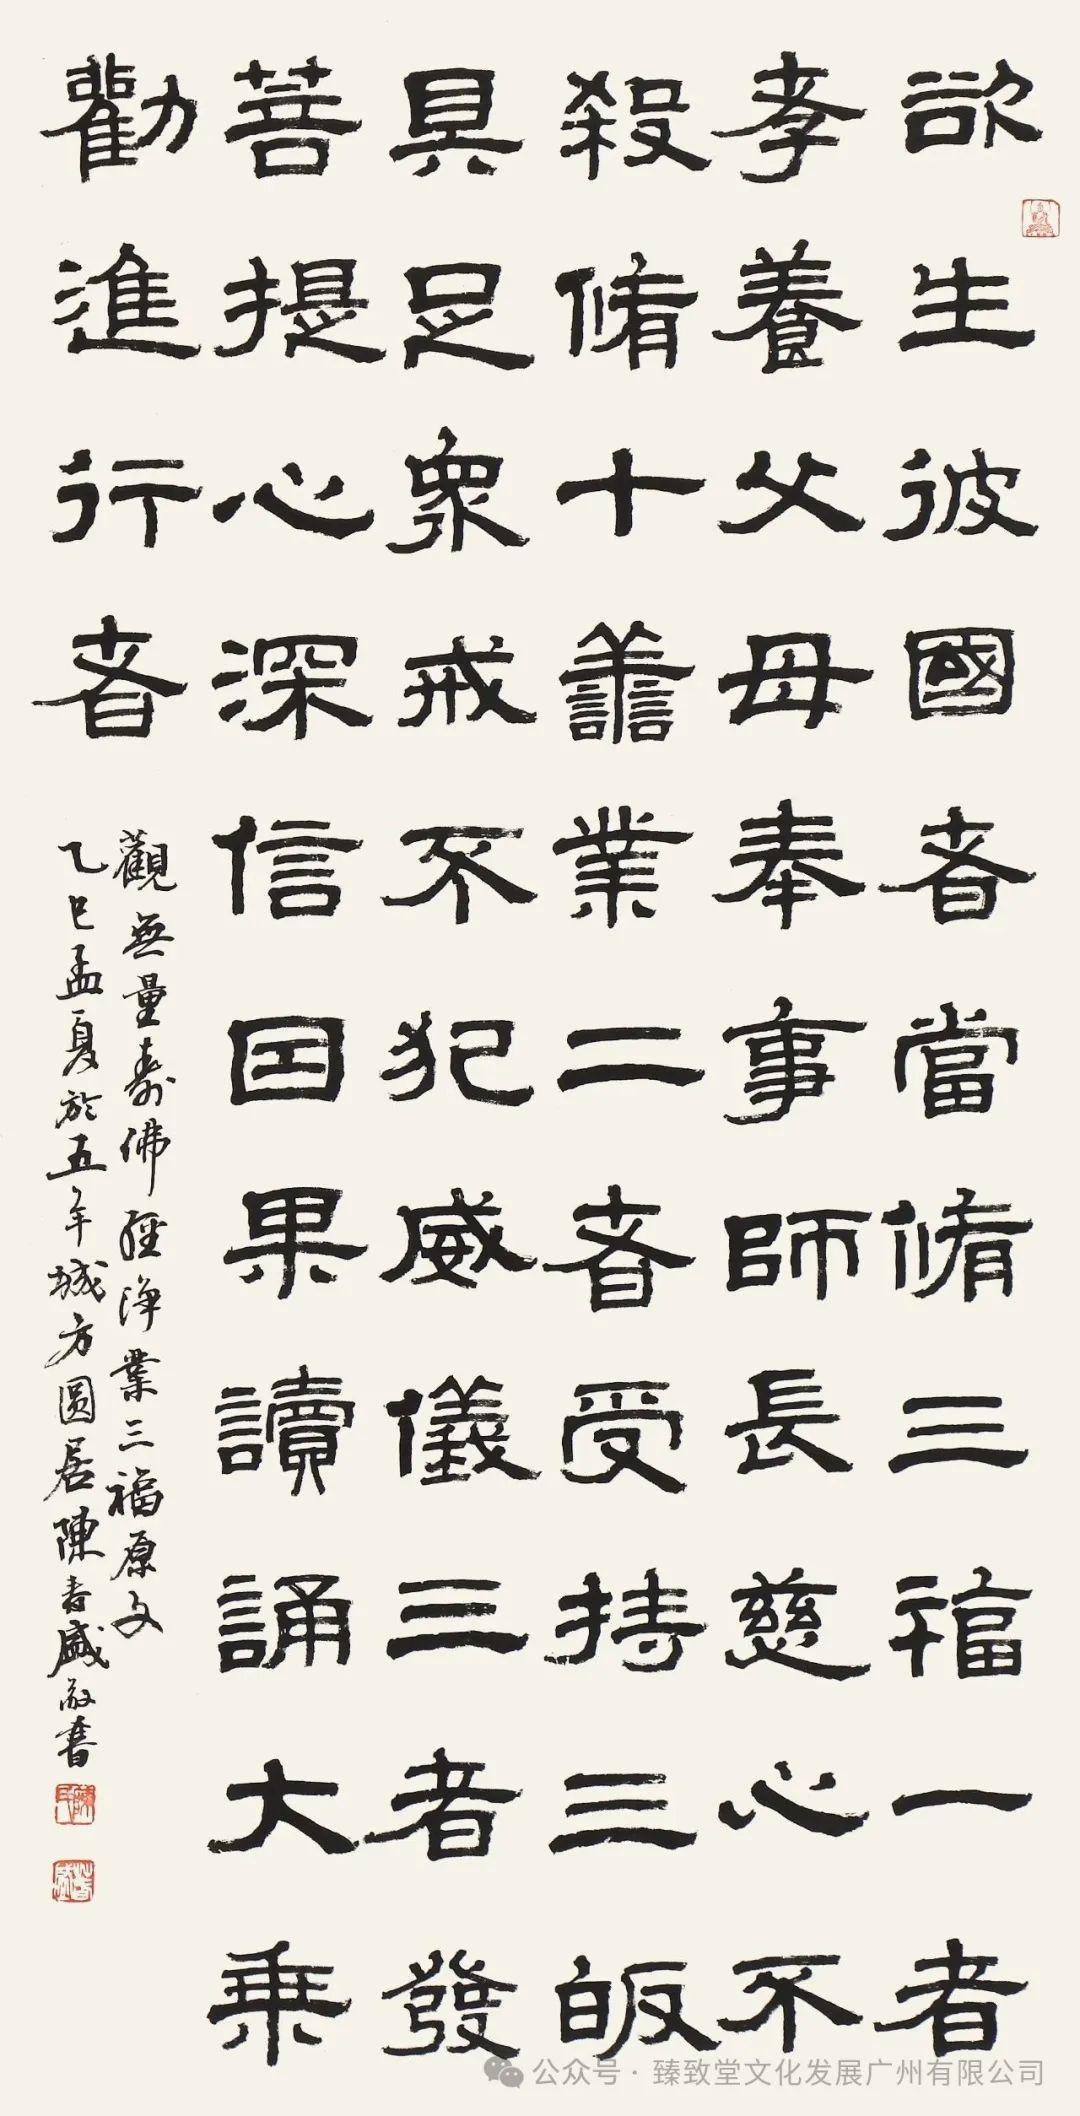 欲生彼國者當脩三福一者
孝養父母奉事師長慈心不
殺脩十善業二者受持三皈
具足衆戒不犯威儀三者發
菩提心深信因果讀誦大乘
勸進行者
觀無量壽佛經淨業三福原文
乙巳孟夏於五羊城方圓居陳春盛敬書
公众号·臻致堂文化发展广州有限公司